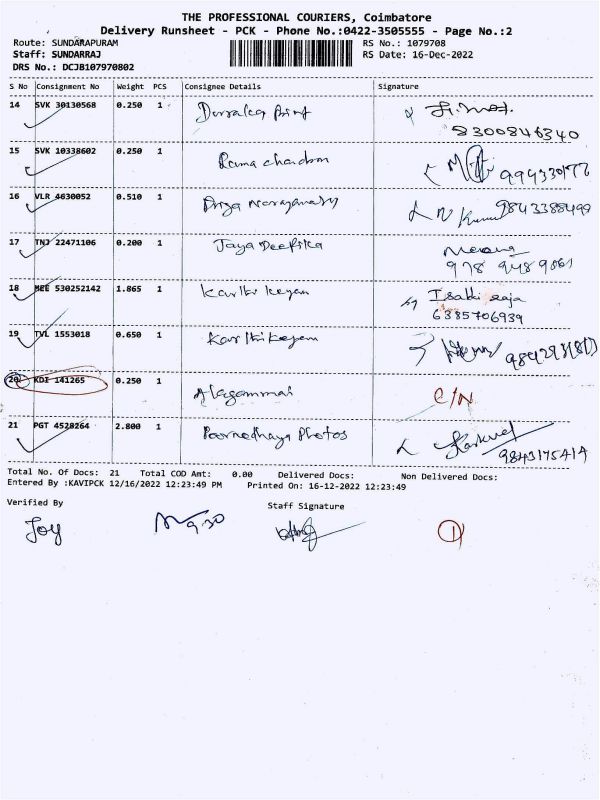 THE PROFESSIONAL COURIERS, Coimbatore
Delivery Runsheet - PCK - Phone No.:0422-3505555 - Page No.:2
Route: SUNDARAPURAM RS No.: 1079708
Staff: SUNDARRAJ RS Date: 16-Dec-2022
DRS No.: DCJB107970802
S No Consignment No Weight PCS Consignee Details Signature
14 SVK 30130568 0.250 1
8300846340
15 SVK 10338602 0.250 1 Rama chandran
16 VLR 4630052 0.510 1 9843388499
17 TNJ 22471106 0.200 1 Jaya Deepika
Meena
978 9489861
18 MEE 530252142 1.865 1 Karthi keyan Isakki raja
6385706939
19 TVL 1553018 0.650 1 Karthikeyan
20 KDI 141265 0.250 1 Alagammai C/N
21 PGT 4528264 2.800 1 Poornodhaya Photos
9843175414
Total No. Of Docs: 21 Total COD Amt: 0.00 Delivered Docs: Non Delivered Docs:
Entered By :KAVIPCK 12/16/2022 12:23:49 PM Printed On: 16-12-2022 12:23:49
Verified By Staff Signature
Joy 9.30 1